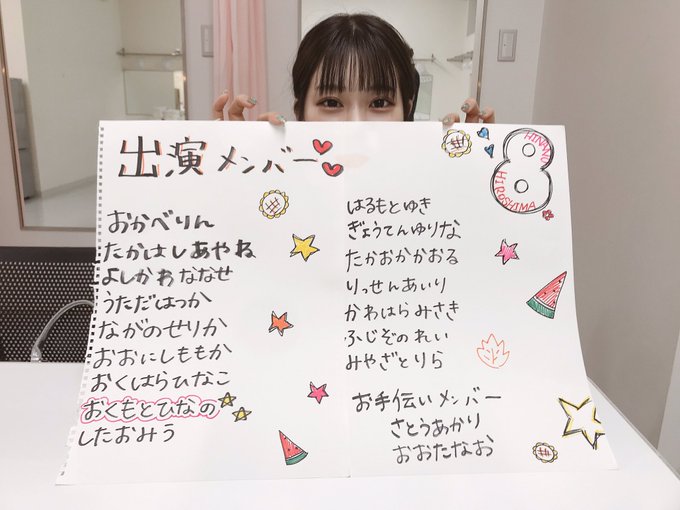 出演メンバー
おかべりん
たかはしあやね
よしかわななせ
うただはつか
ながのせりか
おおにしももか
おくはらひなこ
おくもとひなの
したおみう
8
HINANO
HIROSHIMA
はるもとゆき
ぎょうてんゆりな
たかおかかおる
りっせんあいり
かわはらみさき
ふじぞのれい
みやざとりら
お手伝いメンバー
さとうあかり
おおたなお